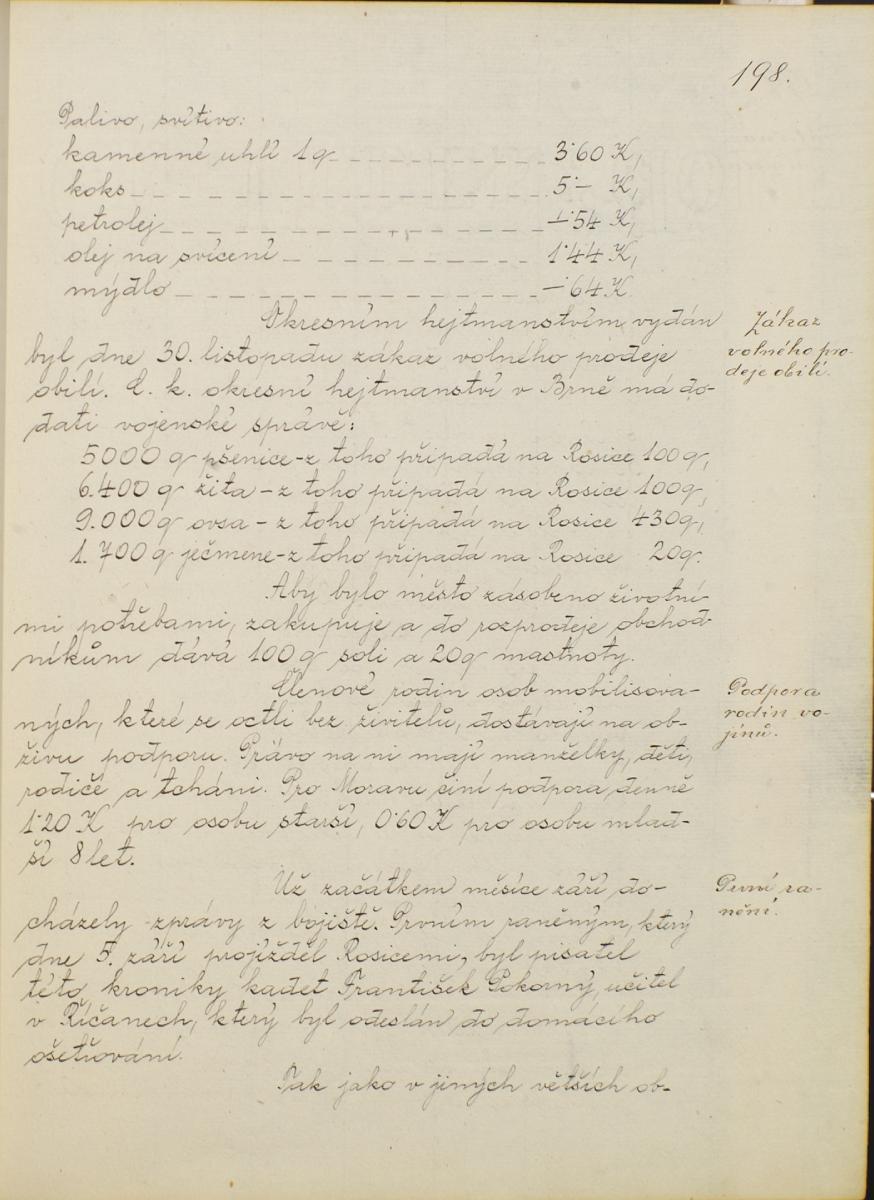 198.
Palivo, svítivo:
kamenné uhlí 1q 3·60 K,
koks 5·— K,
petrolej —·54 K,
olej na svícení 1·44 K,
mýdlo —·64 K
Okresním hejtmanstvím vydán
byl dne 30. listopadu zákaz volného prodeje
obilí. C. k. okresní hejtmanství v Brně má do-
dati vojenské správě:
5000 q pšenice - z toho připadá na Rosice 100 q,
6.400 q žita - z toho připadá na Rosice 100 q,
9.000 q ovsa - z toho připadá na Rosice 430 q,
1.700 q ječmene - z toho připadá na Rosice 20 q.
Aby bylo město zásobeno životní-
mi potřebami, zakupuje a do rozprodeje obchod-
níkům dává 100 q soli a 20 q mastnoty.
Členové rodin osob mobilisova-
ných, které se octli bez živitelů, dostávají na ob-
živu podporu. Právo na ni mají manželky, děti,
rodiče a tcháni. Pro Moravu činí podpora denně
1·20 K pro osobu starší, 0·60 K pro osobu mlad-
ší 8 let.
Už začátkem měsíce září do-
cházely zprávy z bojiště. Prvním raněným, který
dne 5. září projížděl Rosicemi, byl pisatel
této kroniky kadet František Pokorný, učitel
v Říčanech, který byl odeslán do domácího
ošetřování.
Tak jako v jiných větších ob-
Zákaz
volného pro-
deje obilí.
Podpora
rodin vo-
jínů.
První ra-
nění.